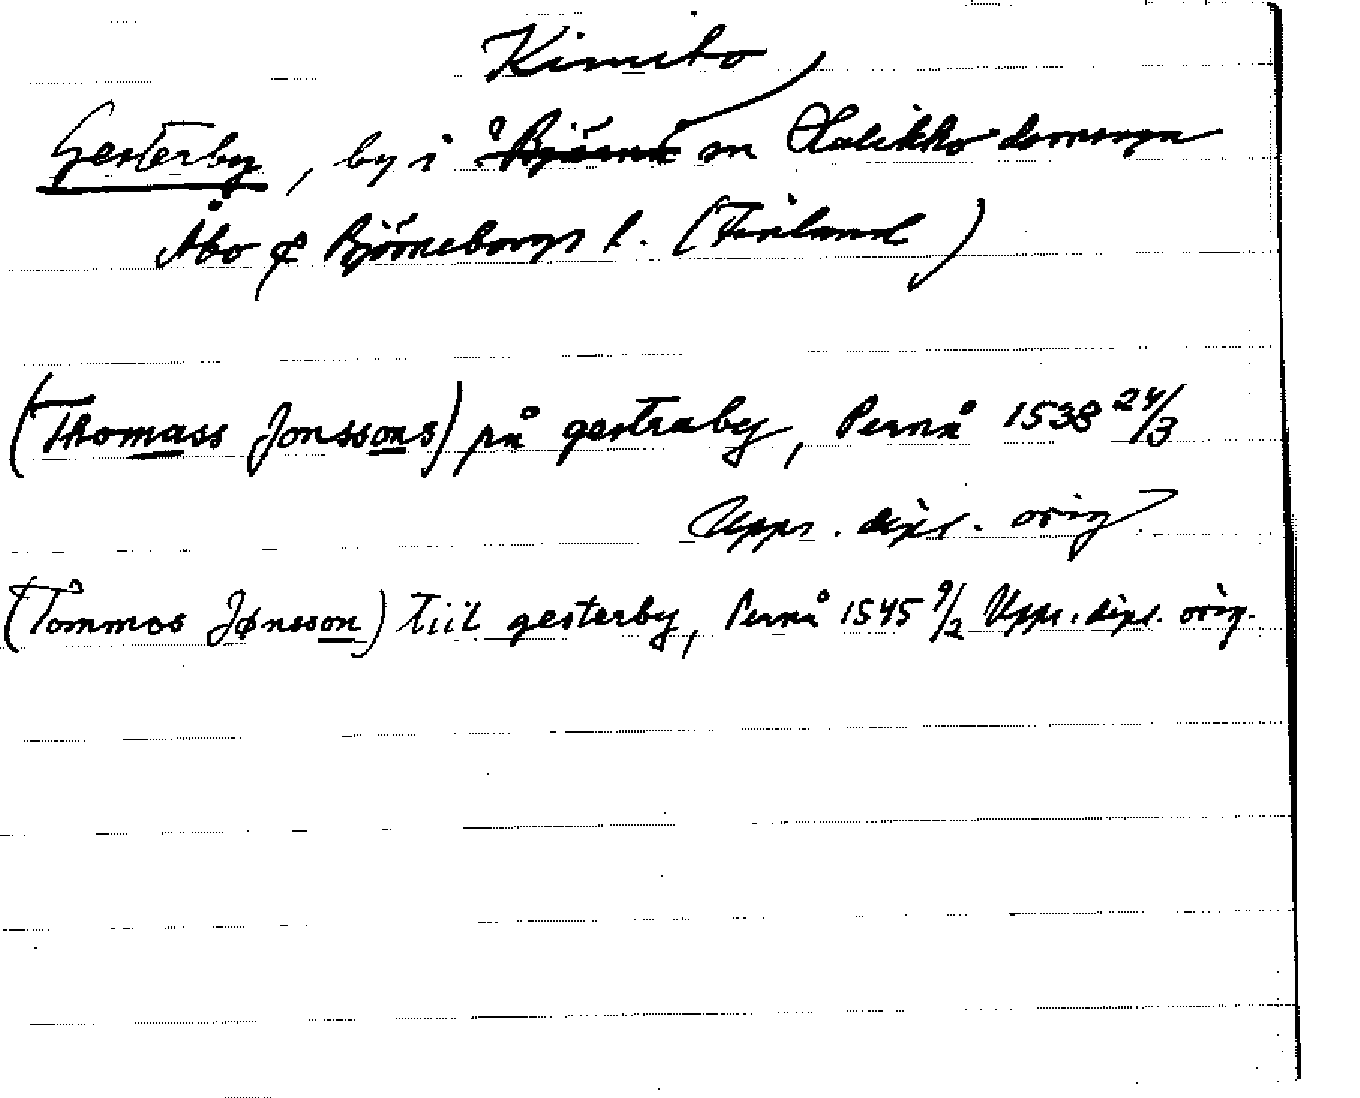 Kimito
Gesterby, by i Bjärnå sn Halikko domsaga
Åbo & Björneborgs l. (Finland)
(Thomass Jonssons) på gestraby, Pernå 1538 24/3
Upps. dipl. orig
(Tommos Jønsson) tiil gesterby, Pernå 1545 9/2 Upps. dipl. orig.